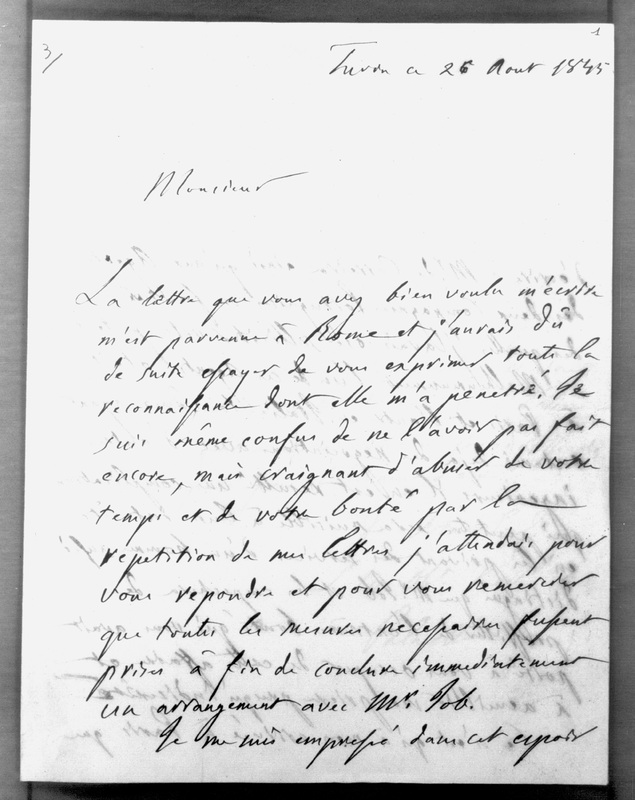 3/
1
Turin ce 26 Aout 1845
Monsieur
La lettre que vous avez bien voulu m'écrire
m'est parvenue à Rome et j'aurais dû
de suite essayer de vous exprimer toute la
reconnaissance dont elle m'a penetré. Je
suis même confus de ne l'avoir pas fait
encore, mais craignant d'abuser de votre
temps et de votre bonté par la
repetition de mes lettres j'attendais pour
vous repondre et pour vous remercier
que toutes les mesures necessaires fussent
prises à fin de conclure immediatement
un arrangement avec Mr. Job.
Je me suis empressé dans cet espoir